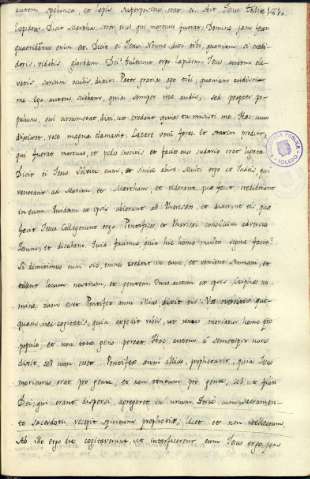 autem spelunca, et lapis superpositus erat ei. Ait Jesus Tollite
lapidem. Dicit Martha soror eius qui mortuus fuerat. Domine, jam fetet
quatriduanus enim est. Dicit ei Jesus Nonne dixi tibi, quoniam si credi-
deris, videbis gloriam Dei? Tulerunt ergo lapidem, Jesus autem ele-
vatis sursum oculis dixit. Pater gratias ago tibi, quoniam audisti
me. Ego autem sciebam, quia semper me audis, sed propter po-
pulum, qui circumstat dixi, ut credant quia tu me misisti. Hec cum
dixisset, voce magna clamavit. Lazare veni foras et statim prodiit,
qui fuerat mortuus, et
Dicit ei Jesus Solvite eum, et sinite abire. Multi ergo ex Judeis qui
venerant ad Mariam et Martham, et viderant que fecit crediderunt
in eum. Quidam ex ipsis abierunt ad Phariseos, et dixerunt eis que
fecit Jesus. Collegerunt ergo Pontifices et Pharisei concilium adversus
Jesum, et dicebant. Quid facimus quia hic homo multa signa facit?
Si dimittimus eum sic, omnes credent in eum, et venient Romani, et
tollent locum nostrum, et gentem. Unus autem ex ipsis, Caiphas no-
mine cum esset Pontifex anni illius dixit eis. Vos nescitis quic-
quam nec cogitatis, quia expedit vobis, ut unus moriatur homo pro
populo, et non tota gens pereat. Hoc autem a semetipso non
dixit, sed cum esset Pontifex anni illius, prophetavit, quia Jesus
moriturus erat pro gente, et non tantum pro gente, sed ut filios
Dei qui erant dispersi, agregaret in unum.
sacerdotii recepit spiritum prophetie, licet et non
Ab illo ergo die cogitaverunt ut interficerent eum Jesus ergo jam
TOLEDO